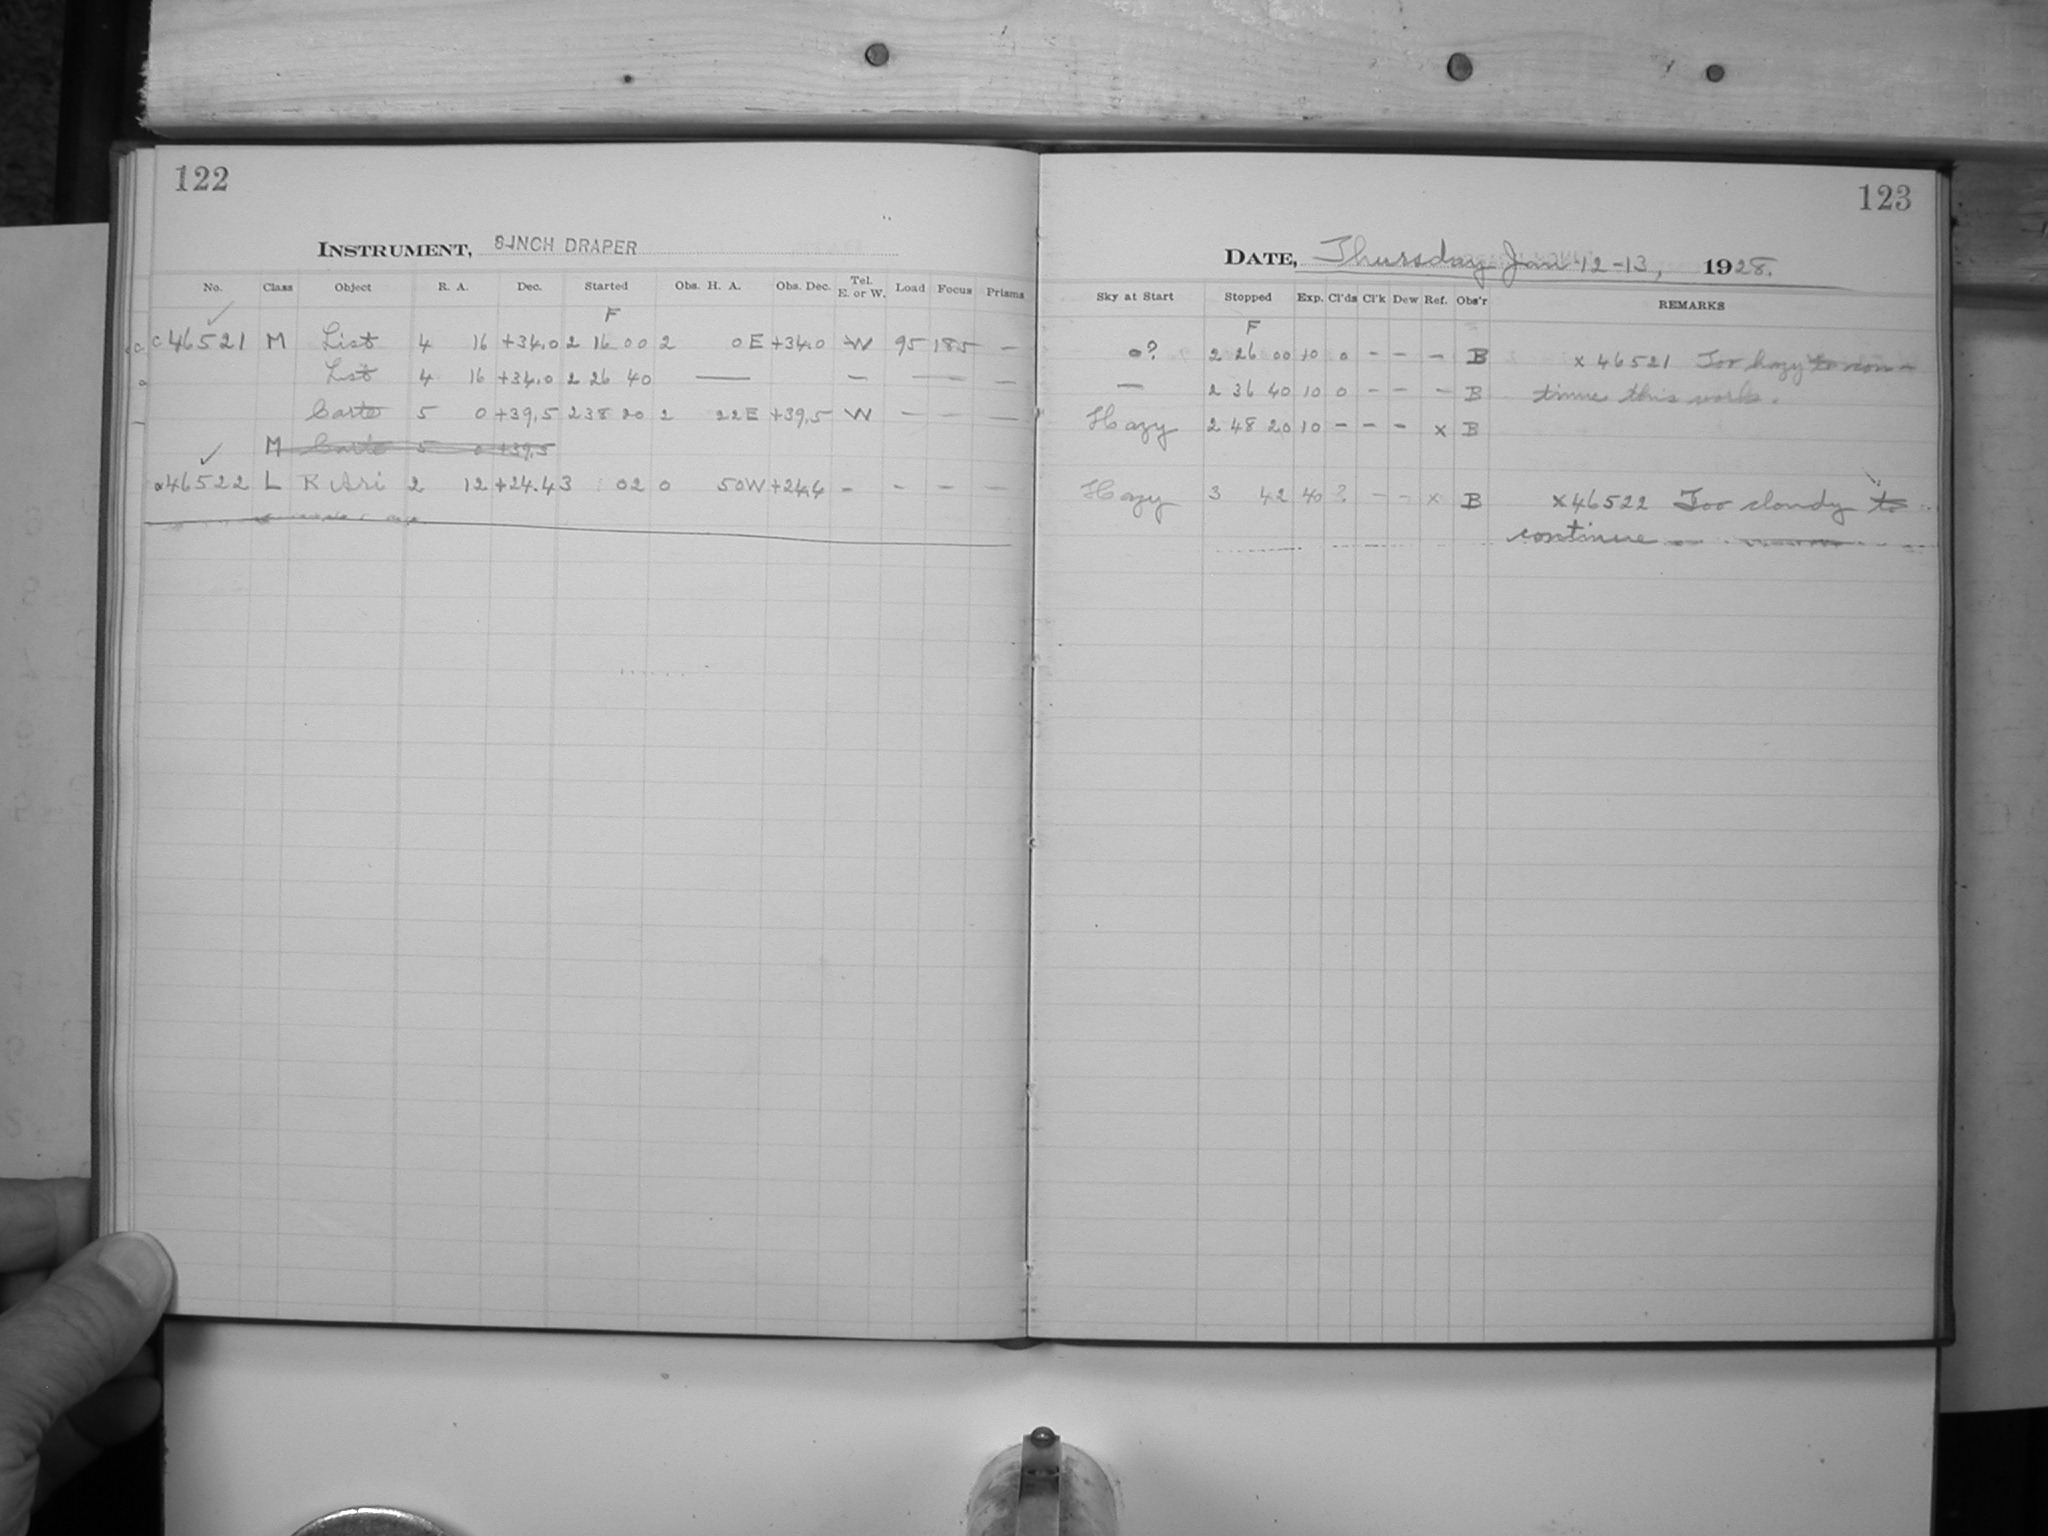 122
INSTRUMENT, 8-INCH DRAPER
No. Class Object R. A. Dec. Started Obs. H. A. Obs. Dec. Tel. E. or W. Load Focus Prisms
F
c46521 M List 4 16 +34.0 2 16 00 2 0 E +34.0 W 95 185 —
List 4 16 +34.0 2 26 40 — — — —
Carte 5 0 +39.5 2 38 20 2 22 E +39.5 W — — —
M Carte 5 0 +39.5
46522 L R Ari 2 12 +24.4 3 02 0 50 W +24.4 - - - —
123
DATE, Thursday Jan 12-13, 1928.
Sky at Start Stopped Exp. Cl'ds Cl'k Dew Ref. Obs'r REMARKS
F
o? 2 26 00 10 0 - - - B x 46521 Too hazy to con-
— 2 36 40 10 0 - - - B tinue this work.
Hazy 2 48 20 10 - - - x B
Hazy 3 42 40 ? - - x B x46522 Too cloudy to
continue